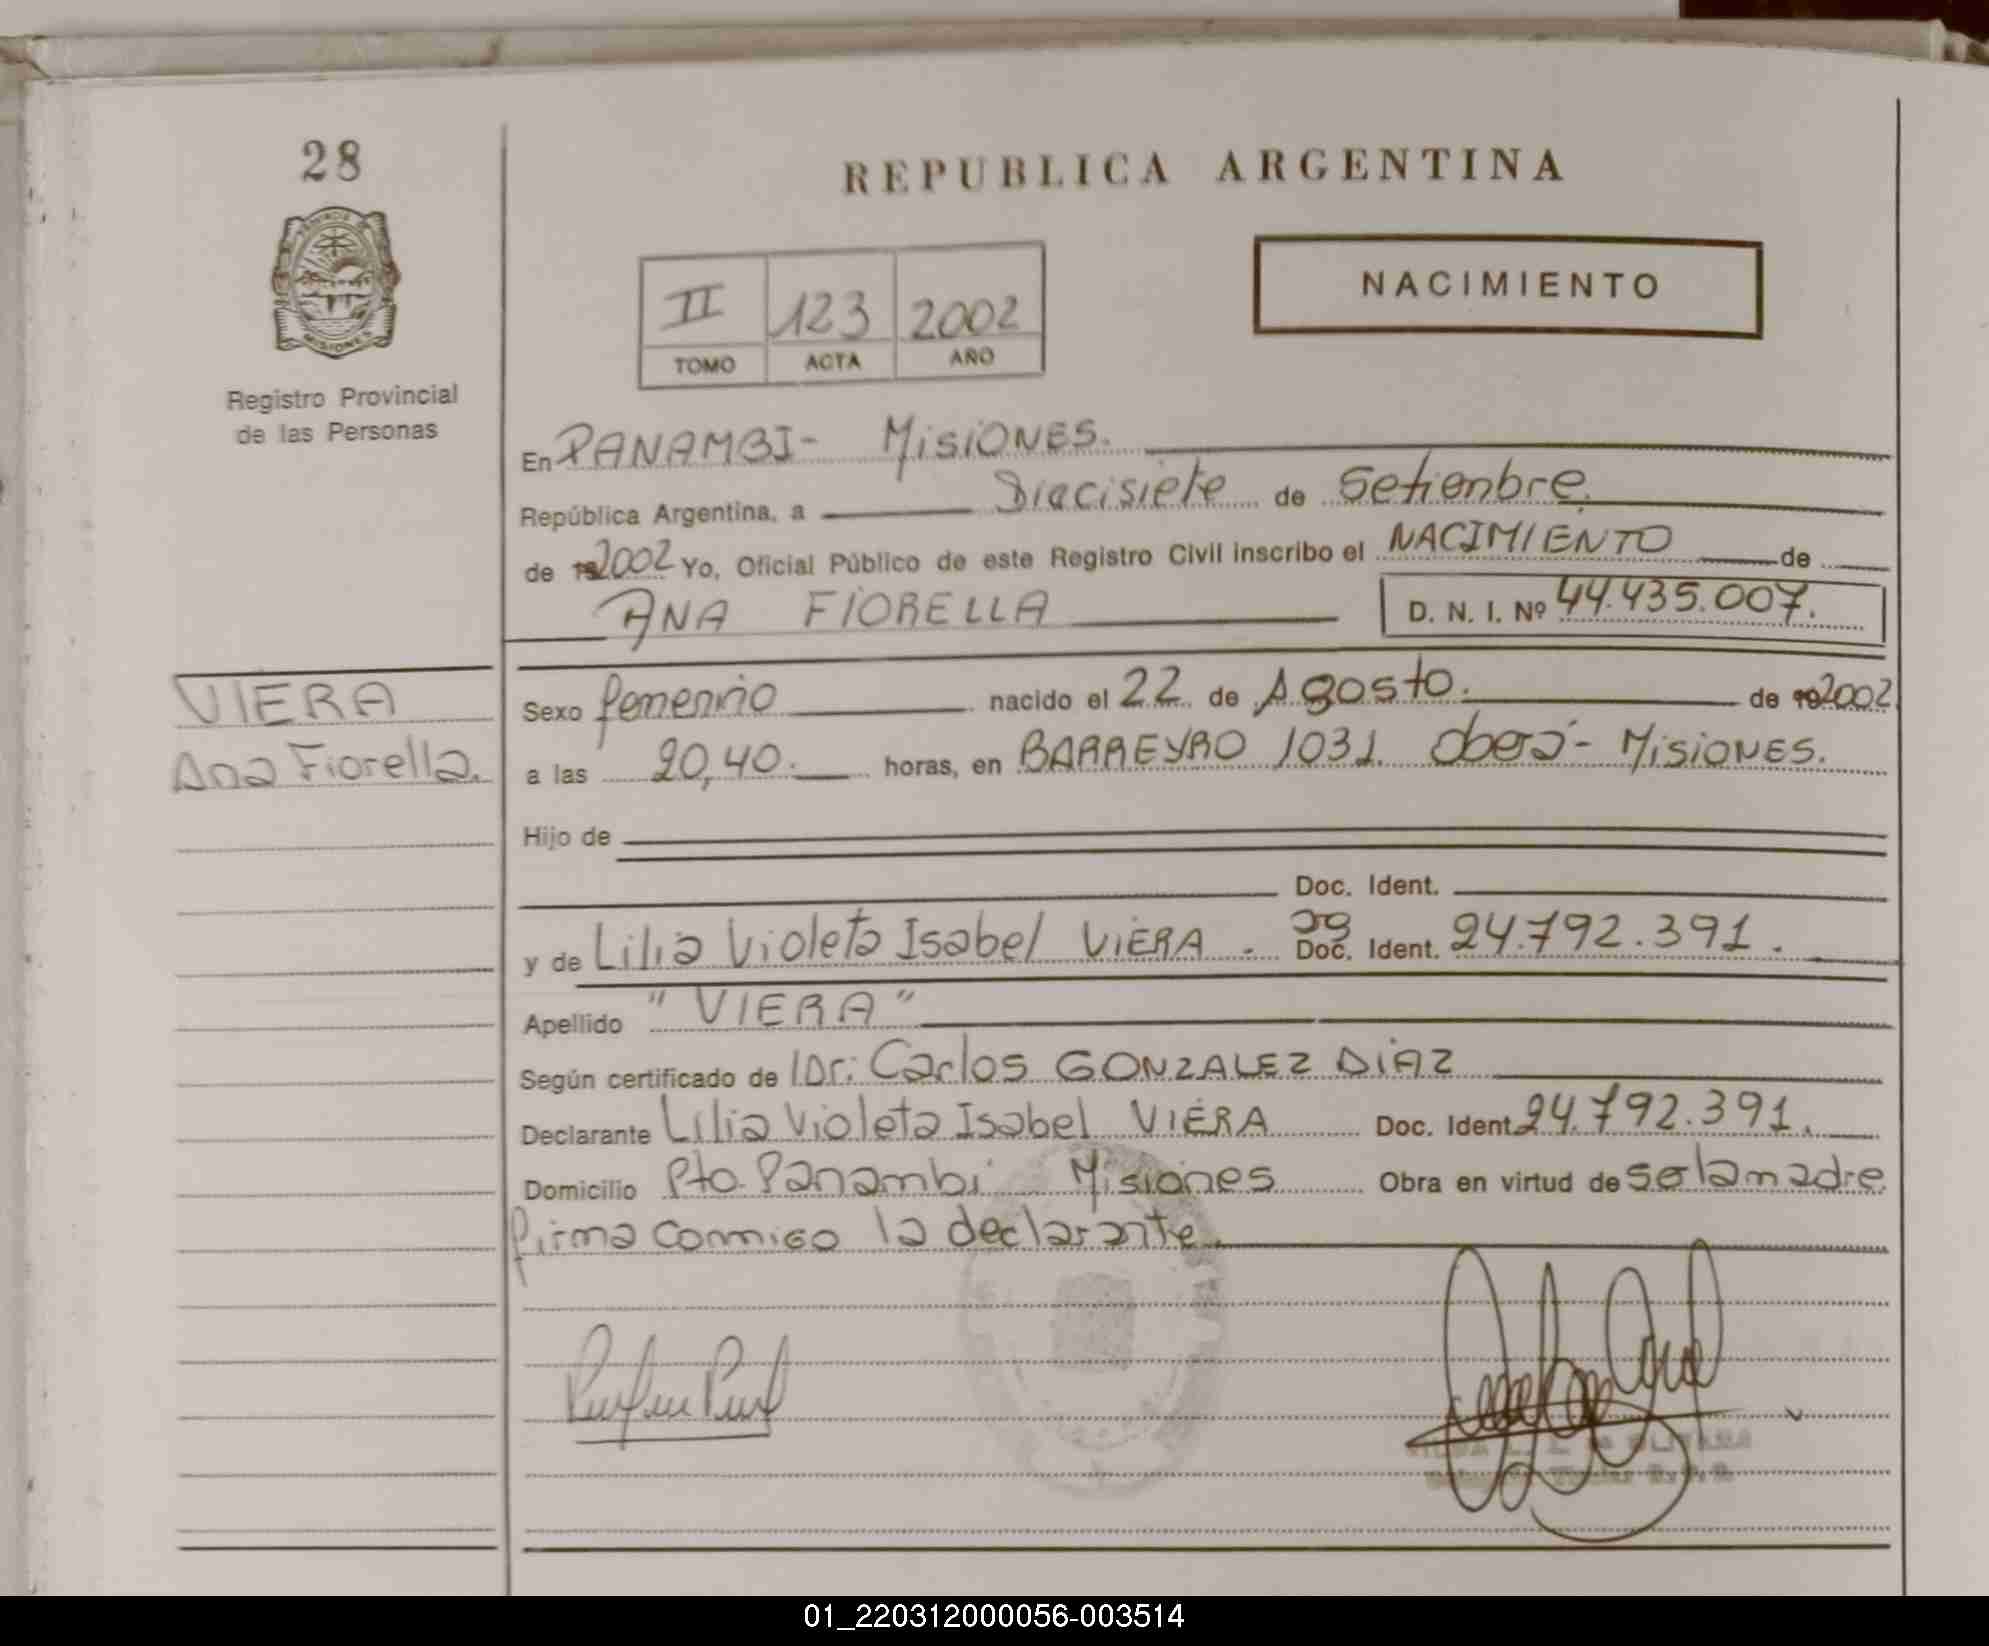 28
REPUBLICA ARGENTINA
NACIMIENTO
II 123 2002
TOMO ACTA AÑO
MISIONES
Registro Provincial
de las Personas
En PANAMBI- MISIONES.
República Argentina, a Diecisiete de Setienbre.
de 192002 Yo, Oficial Público de este Registro Civil inscribo el NACIMIENTO de
ANA FIORELLA D. N. I. Nº 44.435.007.
VIERA
Ana Fiorella.
Sexo femenino nacido el 22 de Agosto. de 192002
a las 20,40. horas, en BARREYRO 1031. Oberá- MISIONES.
Hijo de
Doc. Ident.
y de Lilia Violeta Isabel VIERA. Doc. Ident. 24.792.391.
Apellido "VIERA"
Según certificado de Dr: Carlos GONZALEZ DIAZ
Declarante Lilia Violeta Isabel VIERA Doc. Ident 24.792.391.
Domicilio Pto. Panambi Misiones Obra en virtud de ser la madre
firma conmigo la declarante.
01_220312000056-003514